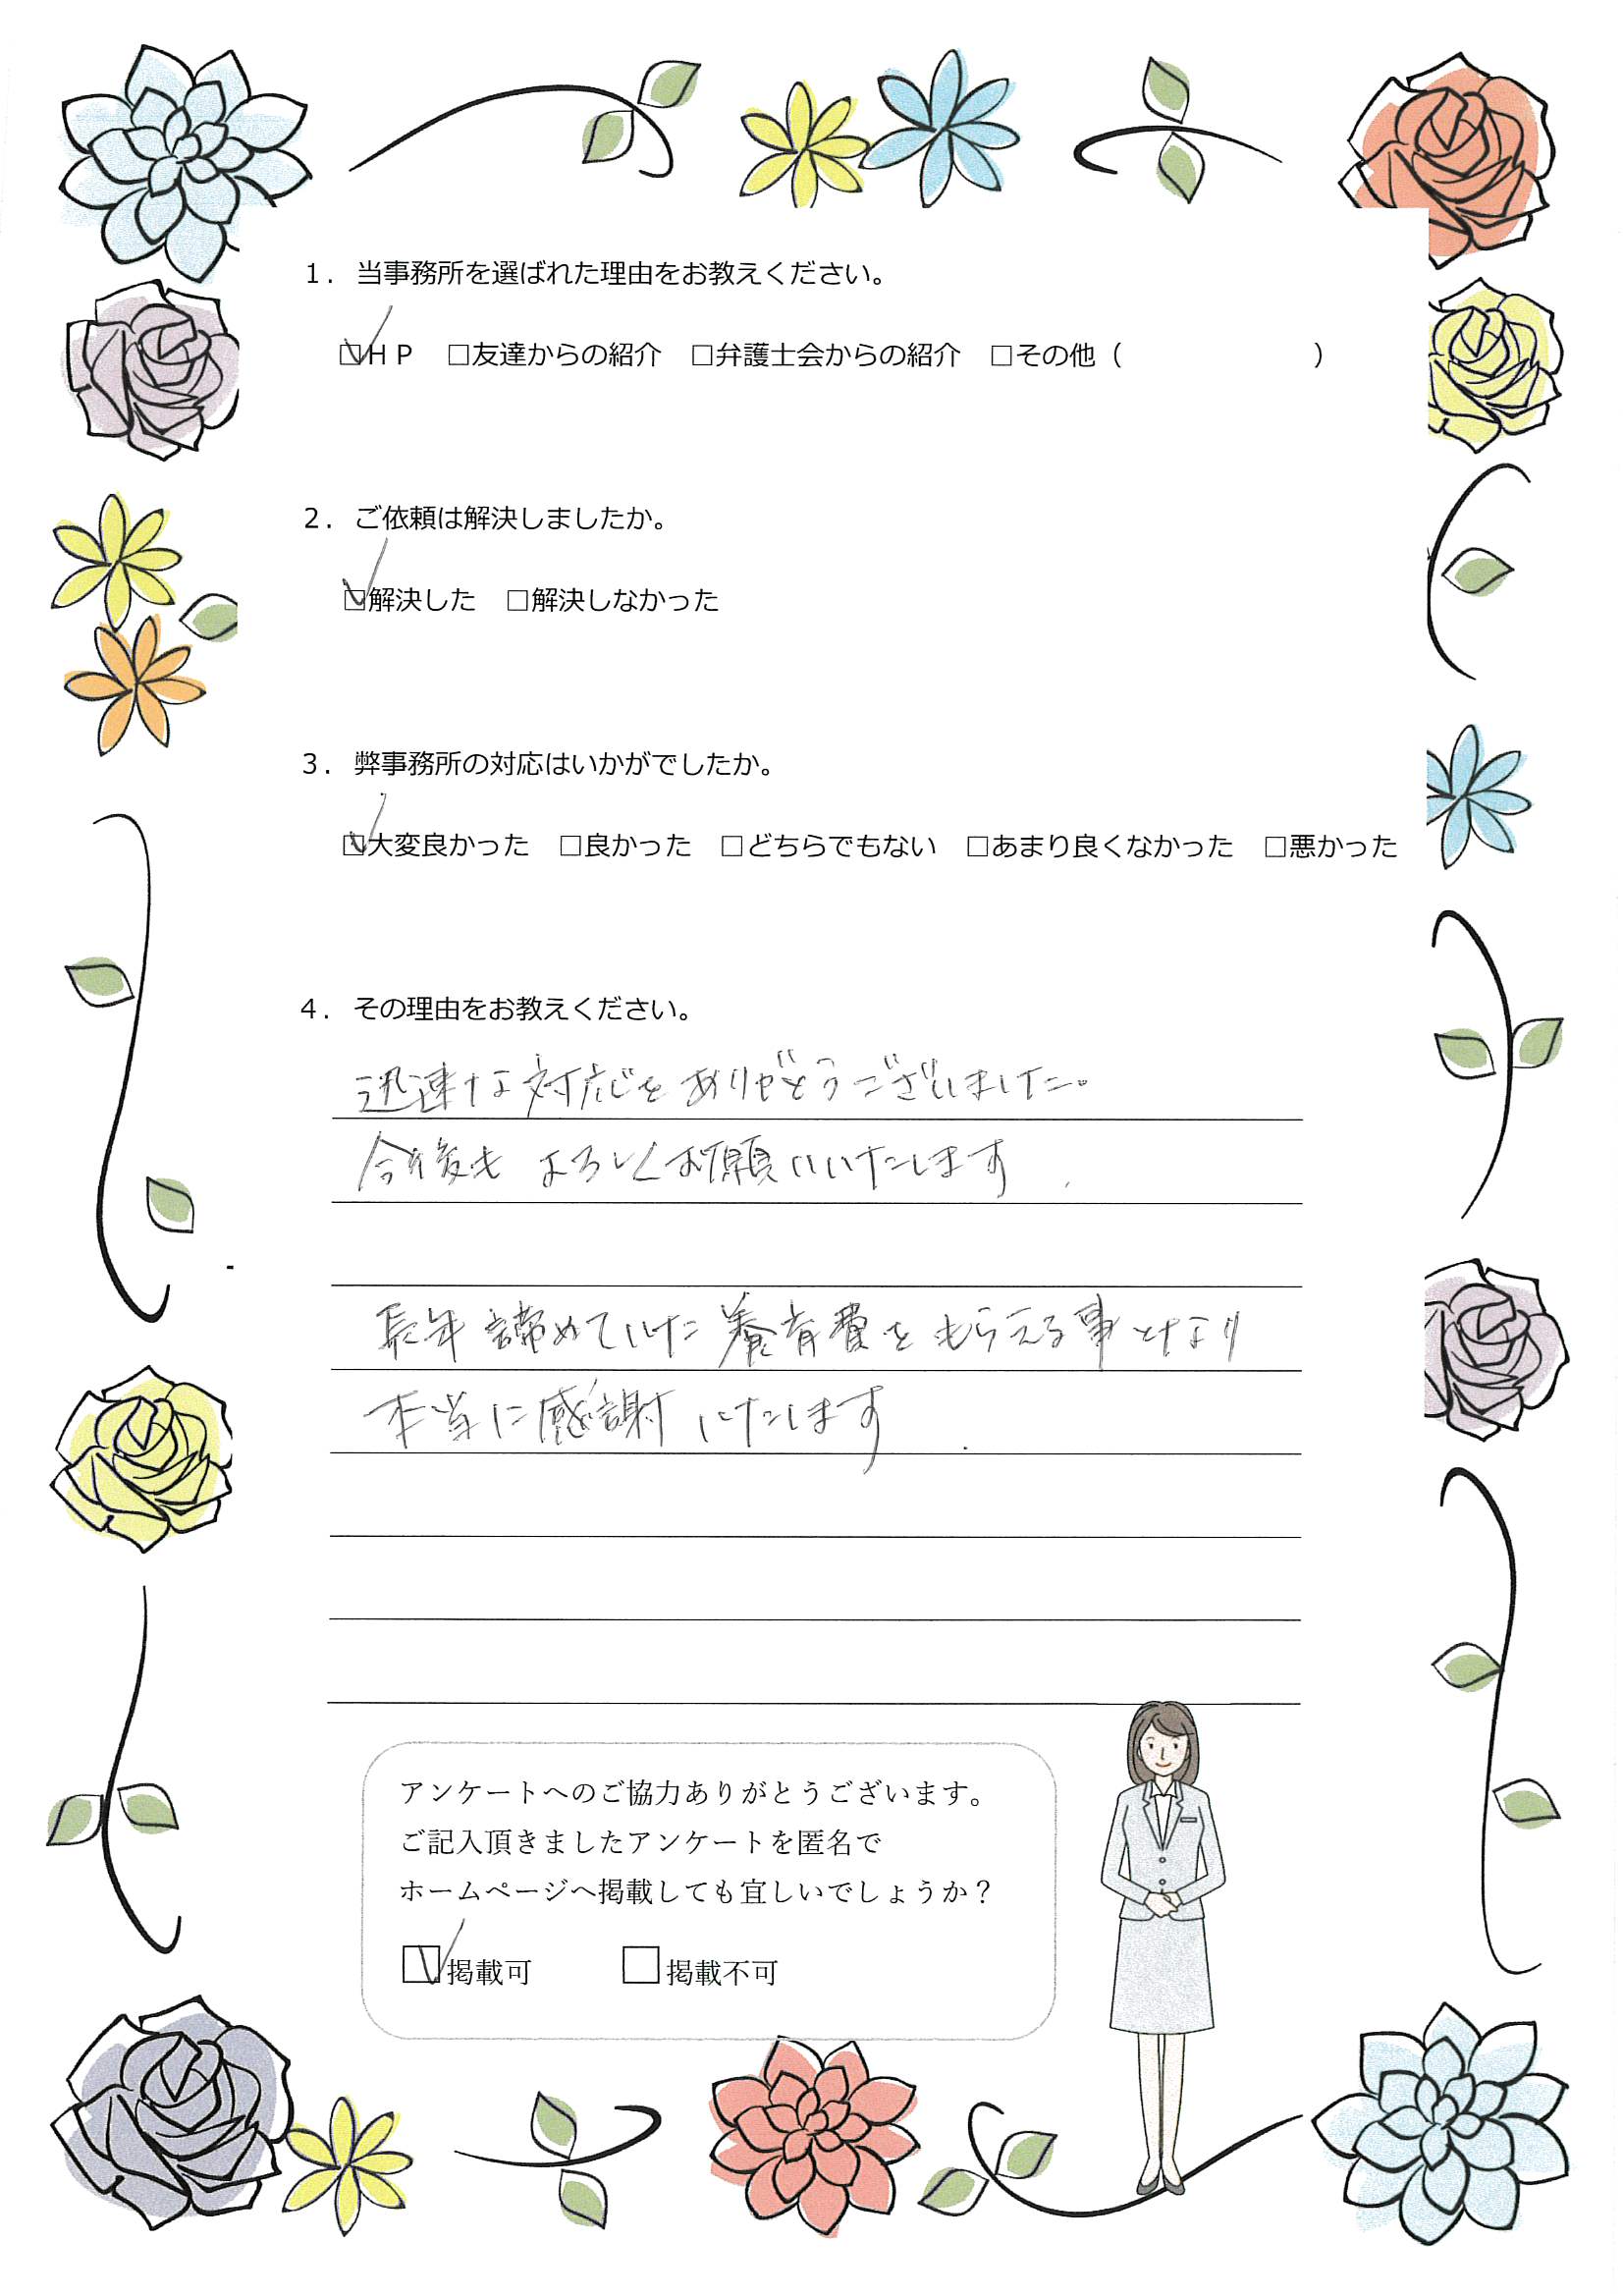 1. 当事務所を選ばれた理由をお教えください。
☑HP □友達からの紹介 □弁護士会からの紹介 □その他( )
2. ご依頼は解決しましたか。
☑解決した □解決しなかった
3. 弊事務所の対応はいかがでしたか。
☑大変良かった □良かった □どちらでもない □あまり良くなかった □悪かった
4. その理由をお教えください。
迅速な対応をありがとうございました。
今後もよろしくお願いいたします.
長年諦めていた養育費をもらえる事となり
本当に感謝いたします.
アンケートへのご協力ありがとうございます。
ご記入頂きましたアンケートを匿名で
ホームページへ掲載しても宜しいでしょうか?
☑掲載可 □掲載不可